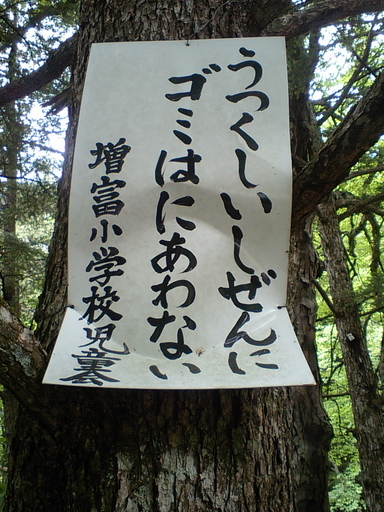 うつくしいしぜんに
ゴミはにあわない
増富小学校児童会